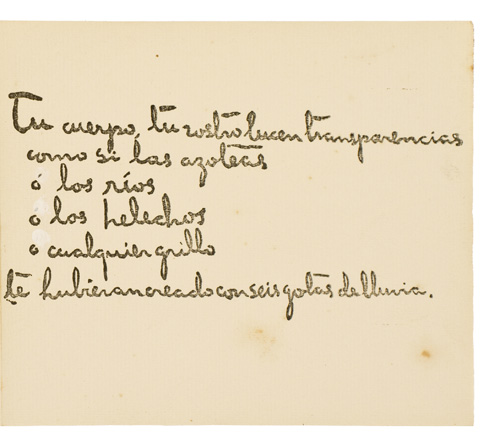 Tu cuerpo, tu rostro lucen transparencias
como si las azoteas
ó los ríos
o los helechos
o cualquier grillo
te hubieran creado con seis gotas de lluvia.